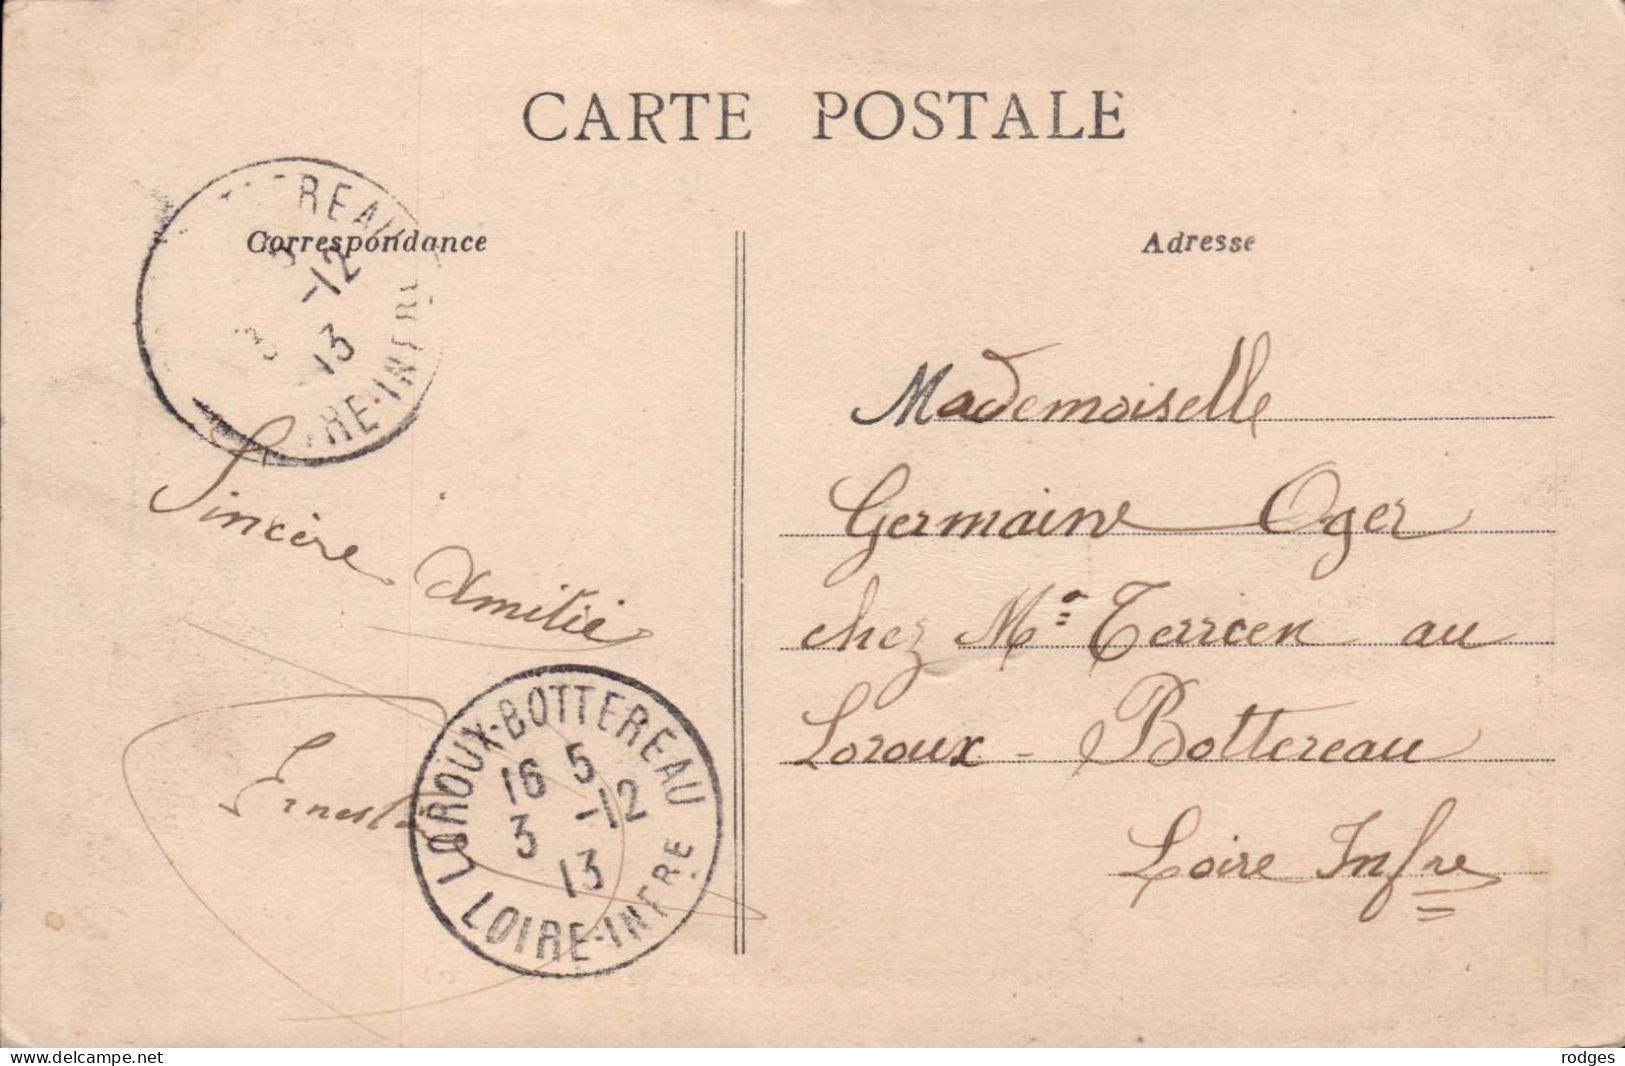 CARTE POSTALE
Correspondance
Adresse
REAU
-12
3
13
RE-INFRE
Sincère Amitié
Ernest
LOROUX-BOTTEREAU
16 5
3 -12
13
LOIRE-INFRE
Mademoiselle
Germaine Oger
chez Mr Terrien au
Loroux - Bottereau
Loire Infre
www.delcampe.net
rodges